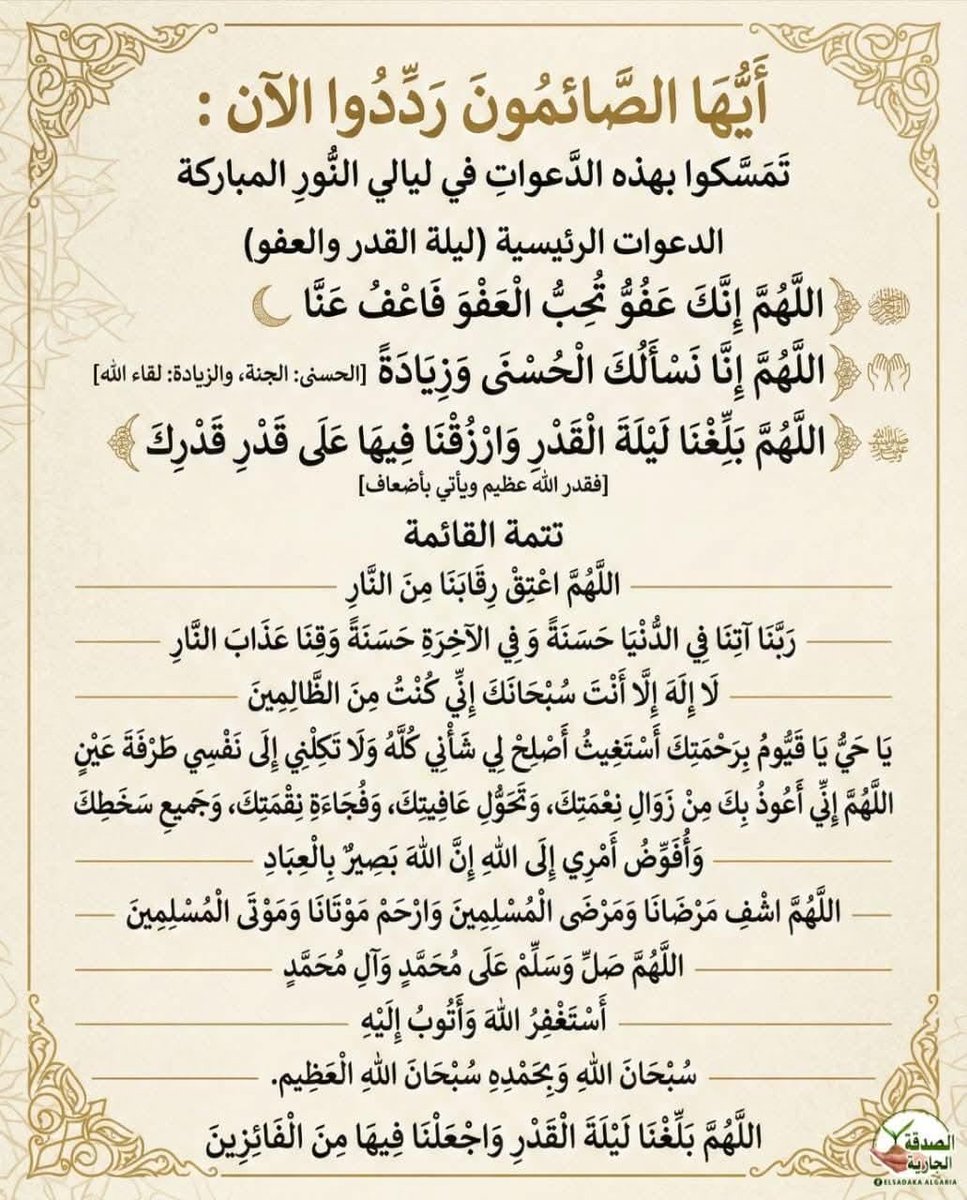 أَيُّهَا الصَّائمُونَ رَدِّدُوا الآن :
تَمَسَّكوا بهذه الدَّعواتِ في ليالي النُّورِ المباركة
الدعوات الرئيسية (ليلة القدر والعفو)
اللَّهُمَّ إِنَّكَ عَفُوٌّ تُحِبُّ الْعَفْوَ فَاعْفُ عَنَّا
اللَّهُمَّ إِنَّا نَسْأَلُكَ الْحُسْنَى وَزِيَادَةً [الحسنى: الجنة، والزيادة: لقاء الله]
اللَّهُمَّ بَلِّغْنَا لَيْلَةَ الْقَدْرِ وَارْزُقْنَا فِيهَا عَلَى قَدْرِ قَدْرِكَ
[فقدر الله عظيم ويأتي بأضعاف]
تتمة القائمة
اللَّهُمَّ اعْتِقْ رِقَابَنَا مِنَ النَّارِ
رَبَّنَا آتِنَا فِي الدُّنْيَا حَسَنَةً وَ فِي الآخِرَةِ حَسَنَةً وَقِنَا عَذَابَ النَّارِ
لَا إِلَهَ إِلَّا أَنْتَ سُبْحَانَكَ إِنِّي كُنْتُ مِنَ الظَّالِمِينَ
يَا حَيُّ يَا قَيُّومُ بِرَحْمَتِكَ أَسْتَغِيثُ أَصْلِحْ لِي شَأْنِي كُلَّهُ وَلَا تَكِلْنِي إِلَى نَفْسِي طَرْفَةَ عَيْنٍ
اللَّهُمَّ إِنِّي أَعُوذُ بِكَ مِنْ زَوَالِ نِعْمَتِكَ، وَتَحَوُّلِ عَافِيتِكَ، وَفُجَاءَةِ نِقْمَتِكَ، وَجَمِيعِ سَخَطِكَ
وَأُفَوِّضُ أَمْرِي إِلَى اللهِ إِنَّ اللهَ بَصِيرٌ بِالْعِبَادِ
اللَّهُمَّ اشْفِ مَرْضَانَا وَمَرْضَى الْمُسْلِمِينَ وَارْحَمْ مَوْتَانَا وَمَوْتَى الْمُسْلِمِينَ
اللَّهُمَّ صَلِّ وَسَلِّمْ عَلَى مُحَمَّدٍ وَآلِ مُحَمَّدٍ
أَسْتَغْفِرُ اللهَ وَأَتُوبُ إِلَيْهِ
سُبْحَانَ اللهِ وَبِحَمْدِهِ سُبْحَانَ اللهِ الْعَظِيمِ.
اللَّهُمَّ بَلِّغْنَا لَيْلَةَ الْقَدْرِ وَاجْعَلْنَا فِيهَا مِنَ الْفَائِزِينَ
الصدقة
الجارية
ELSADAKA ALGARIA